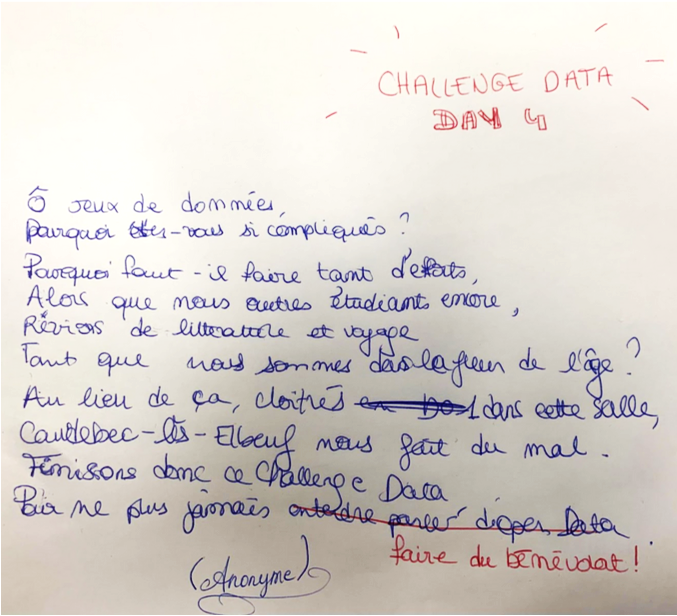 CHALLENGE DATA
DAY 4
Ô jeux de données,
Pourquoi êtes-vous si compliqués ?
Pourquoi faut-il faire tant d'efforts,
Alors que nous autres étudiants encore,
Rêvions de littérature et voyage
Tant que nous sommes dans la fleur de l'âge ?
Au lieu de ça, cloîtrés dans cette salle,
Caudebec-lès-Elbeuf nous fait du mal.
Finissons donc ce Challenge Data
Pour ne plus jamais entendre parler d'open Data
faire du bénévolat !
(Anonyme)